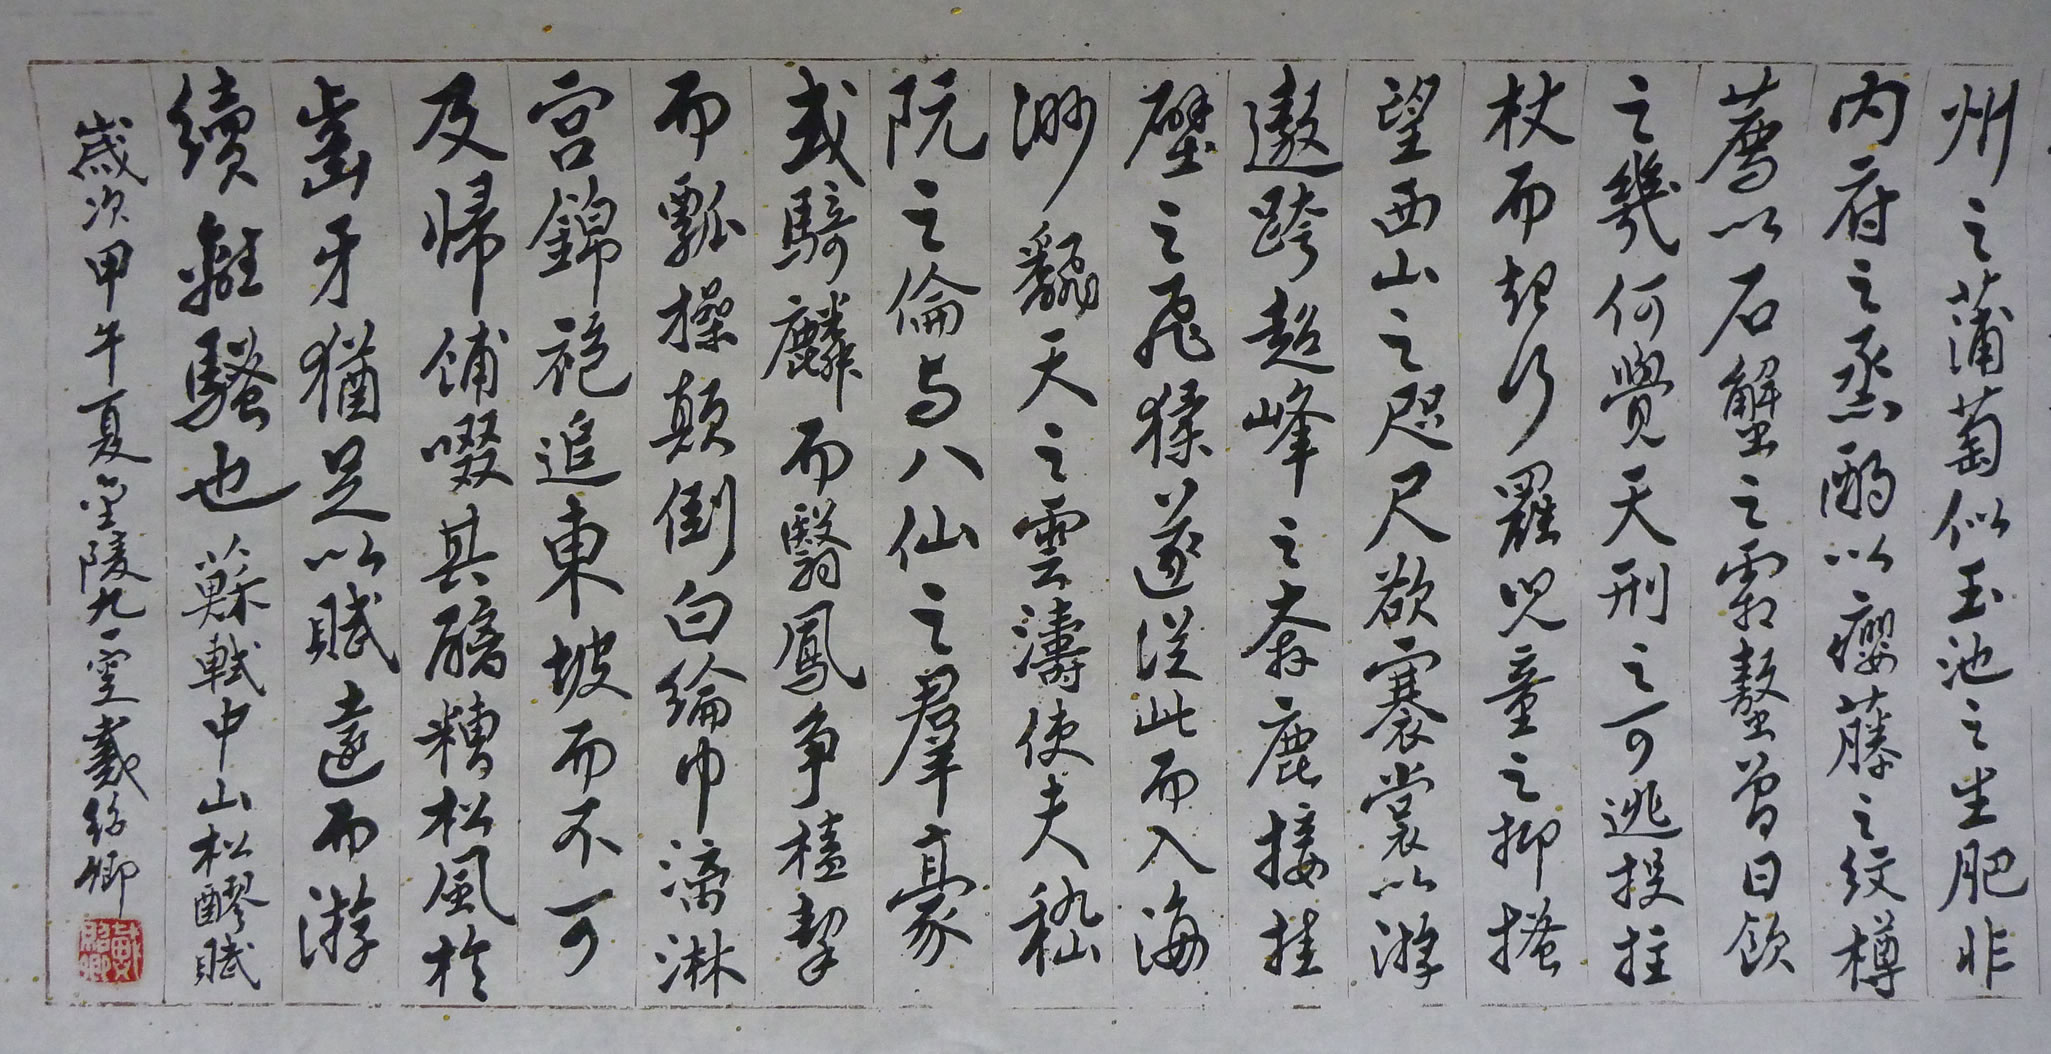 州之蒲萄似玉池之生肥非
内府之烝酪以癭藤之紋樽
薦以石蟹之霜螯曾日飲
之幾何覺天刑之可逃投拄
杖而起行羅兒童之抑搔
望西山之咫尺欲褰裳以游
遨跨超峰之奔鹿接挂
壁之飛猱遂從此而入海
渺翻天之雲濤使夫嵇
阮之倫与八仙之羣豪
或騎麟而翳鳳爭榼挈
而瓢操顛倒白綸巾漓淋
宮錦袍追東坡而不可
及帰餔啜其醨糟松風於
齒牙猶足以賦遠而游
續離騷也 蘇軾中山松醪賦
歲次甲午夏金陵九一叟戴紹卿
戴紹卿